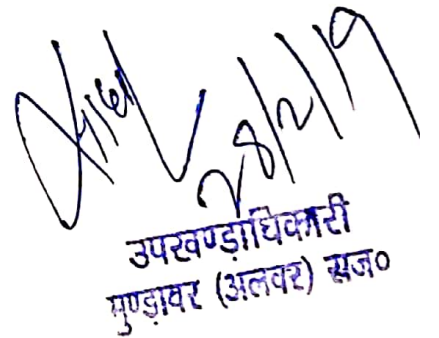 28/2/19
उपखण्ड़ाधिकारी
मुण्ड़ावर (अलवर) राज०